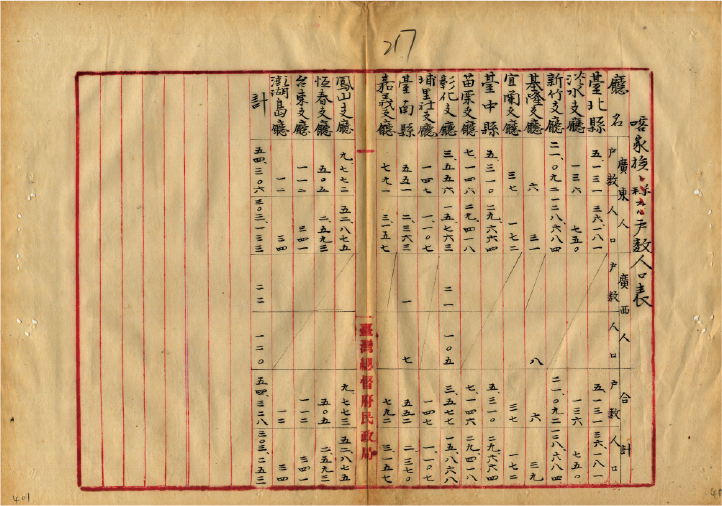 217
喀家族ト稱スル戶數人口表
廣東人 廣西人 合計
廳名 戶數 人口 戶數 人口 戶數 人口
臺北縣 五一三一 三六一八一 五一三一 三六一八一
淡水支廳 一三六 七五〇 一三六 七五〇
新竹支廳 二一、〇九二 一二八六八四 二一、〇九二 一二八六八四
基隆支廳 六 三一 八 六 三九
宜蘭支廳 三七 一七二 三七 一七二
臺中縣 五、三一〇 二九六六四 五、三一〇 二九六六四
苗栗支廳 七一四八 二九四一八 七一四八 二九四一八
彰化支廳 三、五五六 一五七六三 二一 一〇五 三、五七七 一五、八六八
埔里社支廳 一四七 一、一〇七 一四七 一、一〇七
臺南縣 五五一 二三六三 一 七 五五二 二三七〇
嘉義支廳 七九一 三一五七 七九一 三一五七
臺灣總督府民政局
鳳山支廳 九、七七二 五二八七五 九、七七二 五二八七五
恆春支廳 五〇五 二五九三 五〇五 二五九三
台東支廳 一一二 三四一 一一二 三四一
澎湖島廳 一二 三四 一二 三四
計 五四、三〇六 三〇三、一三三 二二 一二〇 五四、三二八 三〇三、二五三
401